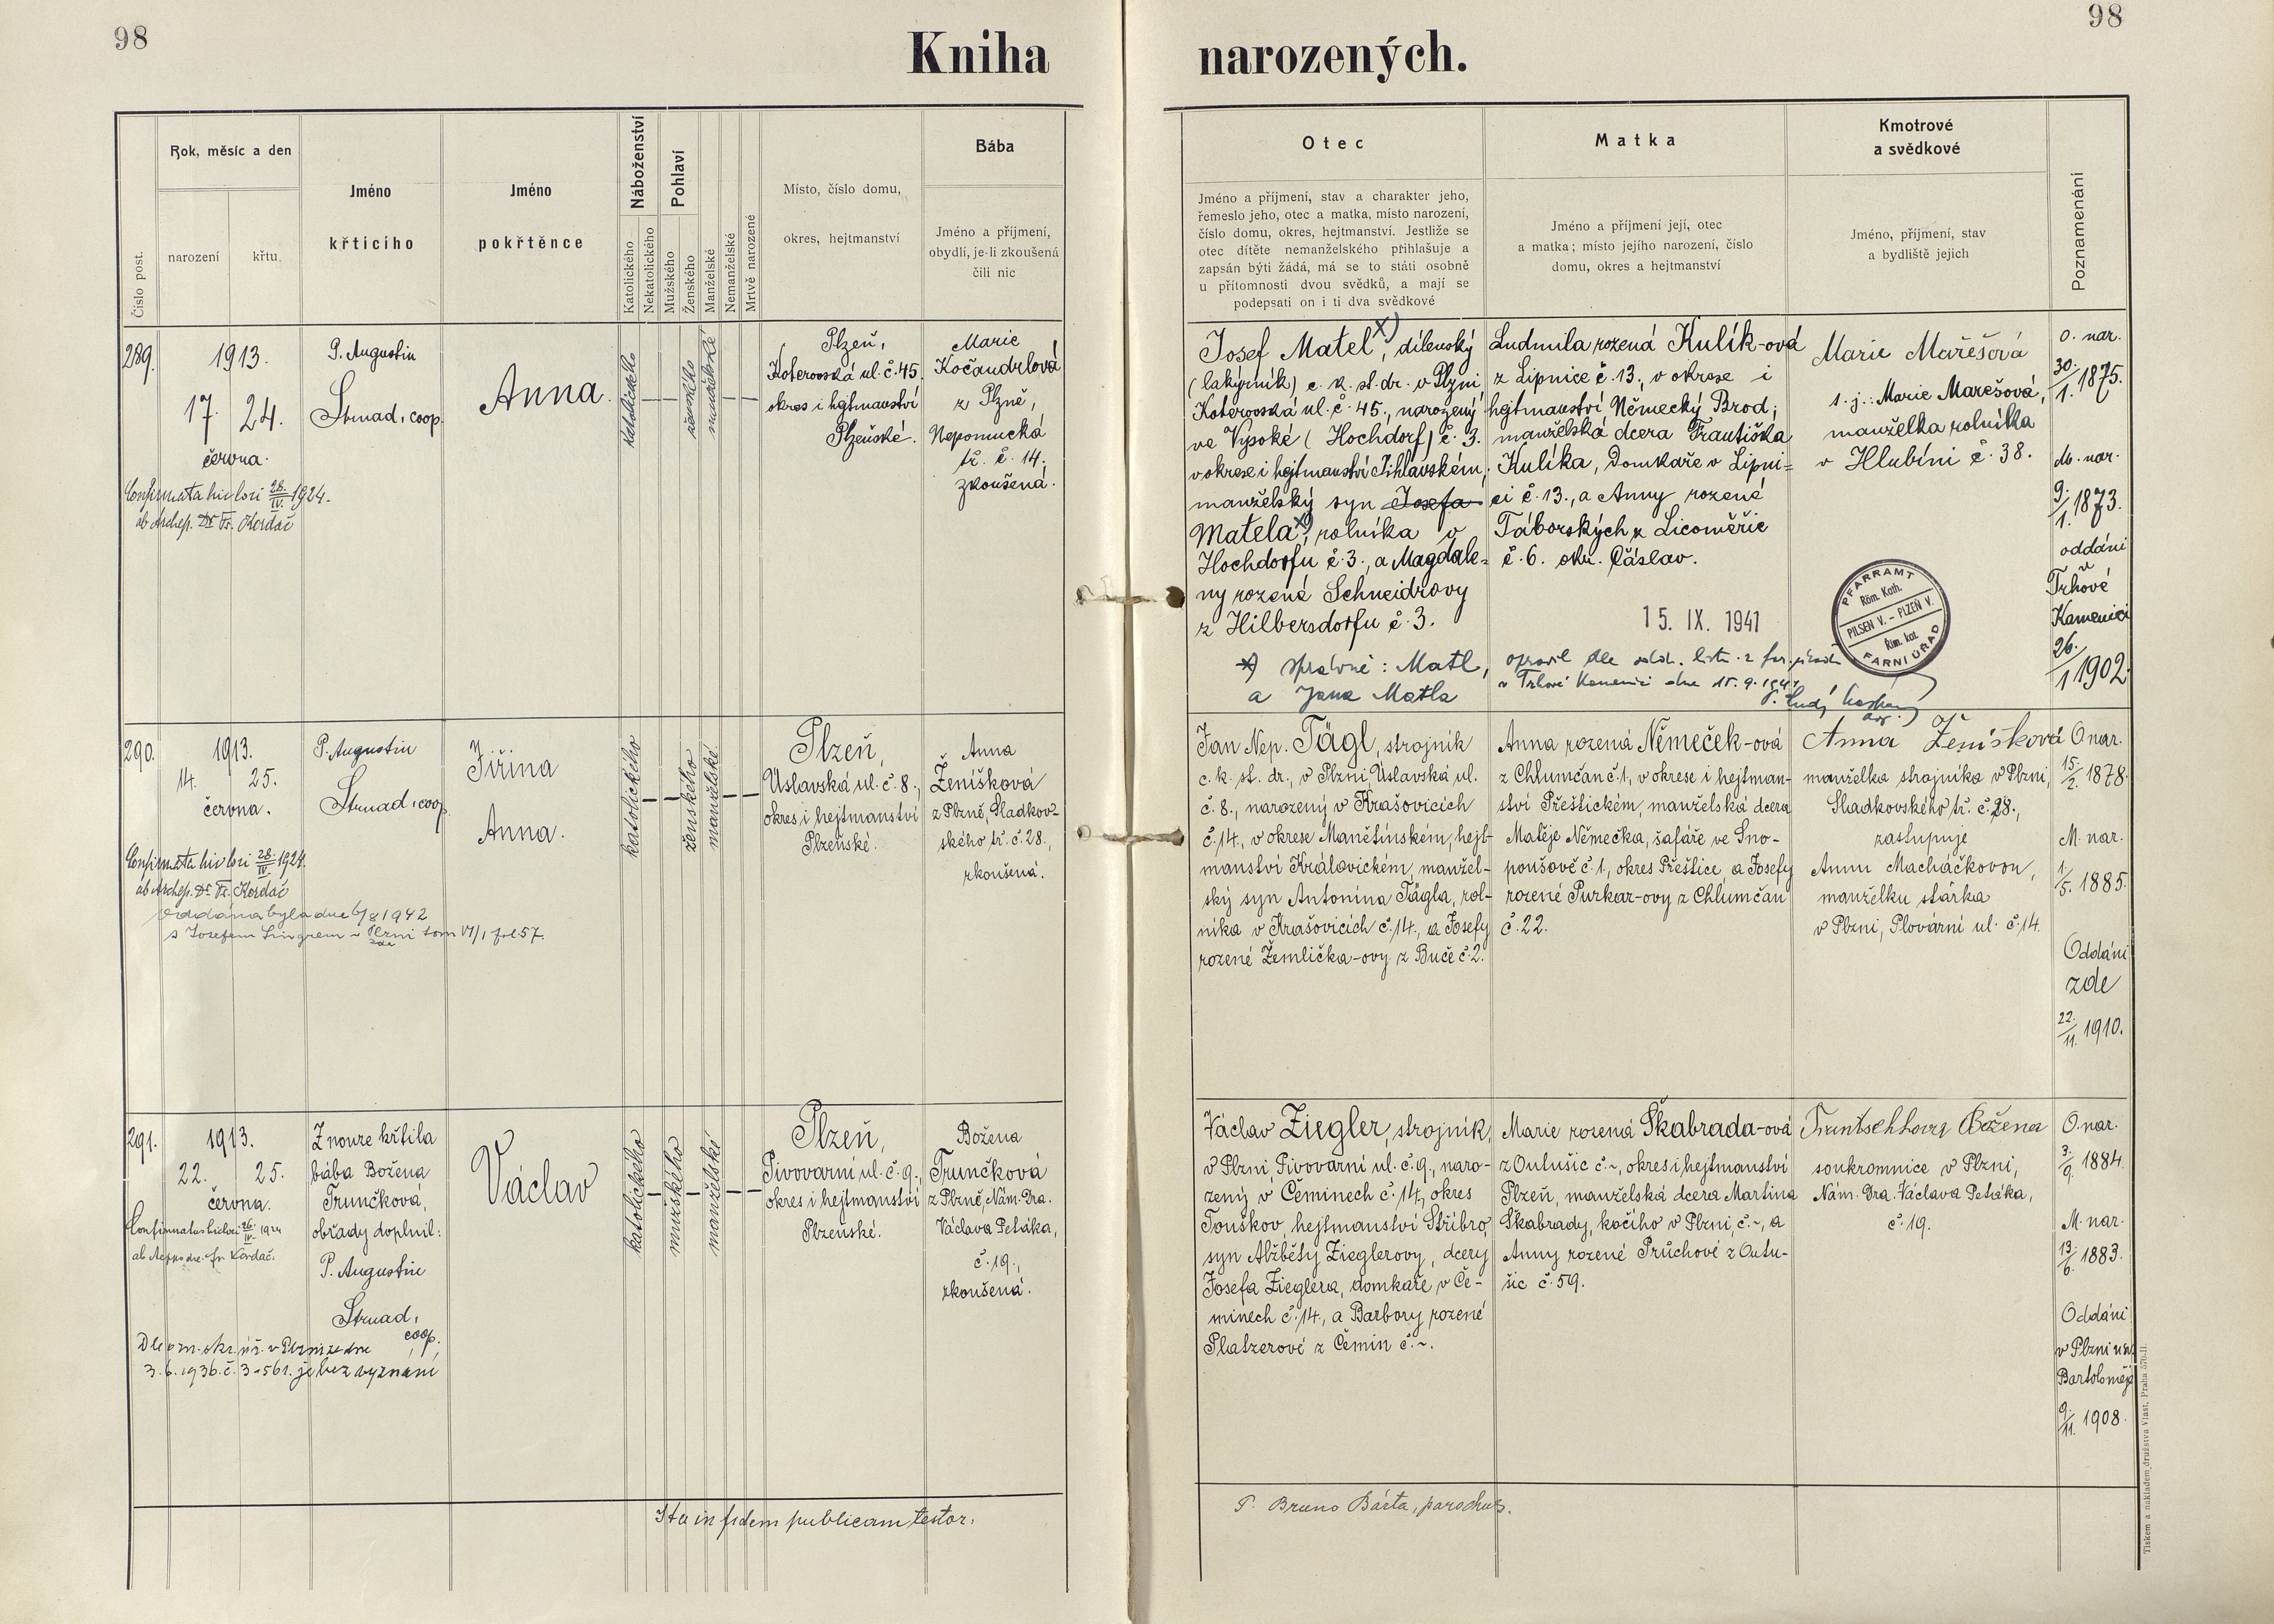 98
98
Kniha narozených.
Číslo post.
Rok, měsíc a den
narození
křtu
Jméno
křticího
Jméno
pokřtěnce
Náboženství
Katolického
Nekatolického
Pohlaví
Mužského
Ženského
Manželské
Nemanželské
Mrtvě narozené
Místo, číslo domu,
okres, hejtmanství
Bába
Jméno a příjmení,
obydlí, je-li zkoušená
čili nic
Otec
Jméno a příjmení, stav a charakter jeho,
řemeslo jeho, otec a matka, místo narození,
číslo domu, okres, hejtmanství. Jestliže se
otec dítěte nemanželského přihlašuje a
zapsán býti žádá, má se to státi osobně
u přítomnosti dvou svědků, a mají se
podepsati on i ti dva svědkové
Matka
Jméno a příjmení její, otec
a matka; místo jejího narození, číslo
domu, okres a hejtmanství
Kmotrové
a svědkové
Jméno, příjmení, stav
a bydliště jejich
Poznamenání
289.
1913.
17. 24.
června.
Confirmata hic loci 28./IV. 1924.
ab Archep. Dr Fr. Kordač
P. Augustin
Strnad, coop.
Anna.
katolického
ženského
manželské
Plzeň,
Koterovská ul. č. 45.
okres i hejtmanství
Plzeňské.
Marie
Kočandrlová
z Plzně,
Nepomucká
tř. č. 14.,
zkoušená.
Josef Matel x), dílenský
(lakýrník) c. k. st. dr. v Plzni
Koterovská ul. č. 45., narozený
ve Vysoké (Hochdorf) č. 3.
v okrese i hejtmanství Jihlavském,
manželský syn Josefa
Matela x), rolníka v
Hochdorfu č. 3., a Magdale-
ny rozené Schneidrovy
z Hilbersdorfu č. 3.
x) správně: Matl,
a Jana Matla
Ludmila rozená Kulík-ová
z Lipnice č. 13., v okrese i
hejtmanství Německý Brod;
manželská dcera Františka
Kulíka, domkaře v Lipni=
ci č. 13., a Anny rozené
Táborských z Licoměřic
č. 6. okr. Čáslav.
15. IX. 1941
opravil dle odd. listu z far. úřadu
v Trhové Kamenici dne 15. 9. 1941
Marie Mařešová
t. j.: Marie Marešová,
manželka rolníka
v Hlubíni č. 38.
PFARRAMT
Röm. Kath.
PILSEN V. - PLZEŇ V.
Řím. kat.
FARNÍ ÚŘAD
o. nar.
30./1. 1875.
m. nar.
9./1. 1873.
oddáni
v
Trhové
Kamenici
26./1 1902.
290.
1913.
14. 25.
června.
Confirmata hic loci 28./IV. 1924.
ab Archep. Dr Fr. Kordač
Oddána byla dne 6/8 1942
s Josefem Singrem v Plzni zde tom VI/1 fol. 57.
P. Augustin
Strnad, coop.
Jiřina
Anna.
katolického
ženského
manželské
Plzeň,
Úslavská ul. č. 8.,
okres i hejtmanství
Plzeňské.
Anna
Ženíšková
z Plzně, Sladkov-
ského tř. č. 28.,
zkoušená.
Jan Nep. Tägl, strojník
c. k. st. dr., v Plzni, Úslavská ul.
č. 8., narozený v Krašovicích
č. 14., v okrese Manětínském, hejt-
manství Královickém, manžel-
ský syn Antonína Tägla, rol-
níka v Krašovicích č. 14., a Josefy
rozené Žemlička-ovy z Buče č. 2.
Anna rozená Němeček-ová
z Chlumčan č. 1., v okrese i hejtman-
ství Přeštickém, manželská dcera
Matěje Němečka, šafáře ve Sno-
poušově č. 1., okres Přeštice, a Josefy
rozené Purkar-ovy z Chlumčan
č. 22.
Anna Ženíšková
manželka strojníka v Plzni,
Sladkovského tř. č. 28.,
zastupuje
Annu Macháčkovou,
manželku stárka
v Plzni, Plovární ul. č. 14.
O nar.
15./2. 1878.
M. nar.
1./5. 1885.
Oddáni
zde
22./11. 1910.
291.
1913.
22. 25.
června.
Confirmatus hic loci 26./IV. 1924
Dle ozn. okr. úř. v Plzni ze dne
3. 6. 1936. č. 3-561. je bez vyznání
Z nouze křtila
bába Božena
Trunčková,
obřady doplnil:
P. Augustin
Strnad,
coop.
Václav
katolického
mužského
manželské
Plzeň,
Pivovarní ul. č. 9.,
okres i hejtmanství
Plzeňské.
Božena
Trunčková
z Plzně, Nám. Dra.
Václava Petáka,
č. 19.,
zkoušená.
Václav Ziegler, strojník,
v Plzni, Pivovarní ul. č. 9., naro-
zený v Čeminech č. 14., okres
Touškov, hejtmanství Stříbro,
syn Alžběty Zieglerovy, dcery
Josefa Zieglera, domkaře v Če-
minech č. 14., a Barbory rozené
Platzerové z Čemin č. ~.
Marie rozená Škabrada-ová
z Outušic č. ~, okres i hejtmanství
Plzeň, manželská dcera Martina
Škabrady, kočího v Plzni, č. ~, a
Anny rozené Průchové z Outu-
šic č. 59.
Božena
soukromnice v Plzni,
Nám. Dra. Václava Petáka,
č. 19.
O. nar.
3./9. 1884.
M. nar.
13./6. 1883.
Oddáni
v Plzni u sv.
Bartoloměje
9./11. 1908.
Ita in fidem publicam testor.
P. Bruno Bárta, parochus.
Tiskem a nakladem družstva Vlast, Praha 570-II.